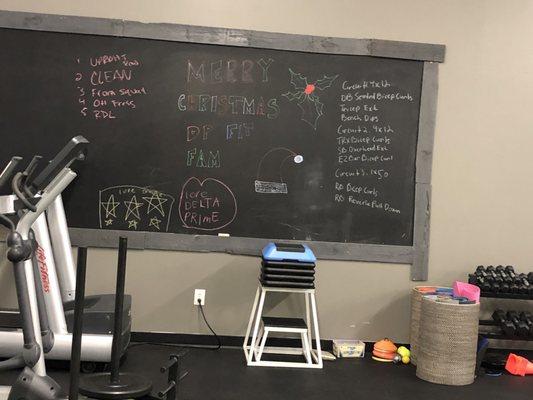 1 Upright Row
2 Clean
3 Front Squat
4 OH Press
5 RDL
MERRY
CHRISTMAS
DP FIT
FAM
love
I love
DELTA
PRIME
Circuit 1 4x12
DB Seated Bicep Curls
Tricep Ext
Bench Dips
Circuit 2 4x12
TRX Bicep Curl
SB Overhead Ext
EZ Bar Bicep Curl
Circuit 3 1x50
RB Bicep Curls
RB Reverse Pull Down
Life Fitness